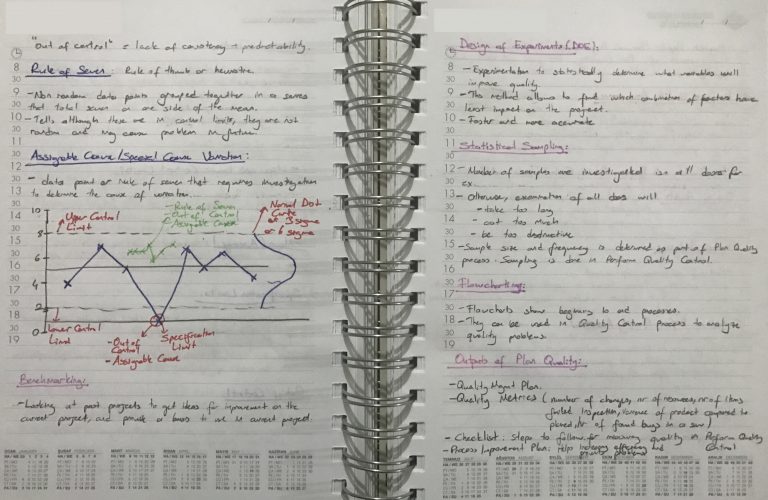 "Out of control" = lack of consistency + predictability.
Rule of Seven: Rule of thumb or heuristic.
- Non random data points grouped together in a series
that total seven on one side of the mean.
- Tells although these are in control limits, they are not
random and may cause problem in future.
Assignable Cause/Special Cause Variation:
- data point or rule of seven that requires investigation
to determine the cause of variation.
Upper Control
Limit
- Rule of Seven
Out of Control
Assignable Cause
Normal Dist
Curve
or 3 sigma
or 6 sigma
10
8
6
4
2
0
Lower Control
Limit
- Out of
Control
- Assignable Cause
Specification
Limit
Benchmarking:
- Looking at past projects to get ideas for improvement on the
current project, and provide a basis to use in current project.
Design of Experiments (DOE):
- Experimentation to statistically determine what variables will
improve quality.
- This method allows to find which combination of factors have
least impact on the project.
- Faster and more accurate
Statistical Sampling:
- Number of samples are investigated in all doors for
ex.
- Otherwise, examination of all doors will
- take too long
- cost too much
- be too destructive
- Sample size and frequency is determined as part of Plan Quality
process. Sampling is done in Perform Quality Control.
Flowcharting:
- Flowcharts show beginning to end processes.
- They can be used in Quality Control process to analyze
quality problems.
Outputs of Plan Quality:
- Quality Mgmt Plan.
- Quality Metrics (number of changes, nr of resources, nr of items
failed inspection, variance of product compared to
planned, nr of found bugs in a
- Checklist: steps to follow for measuring quality in Perform Quality
Control
- Process Improvement Plan: helps increasing effectiveness and
problems